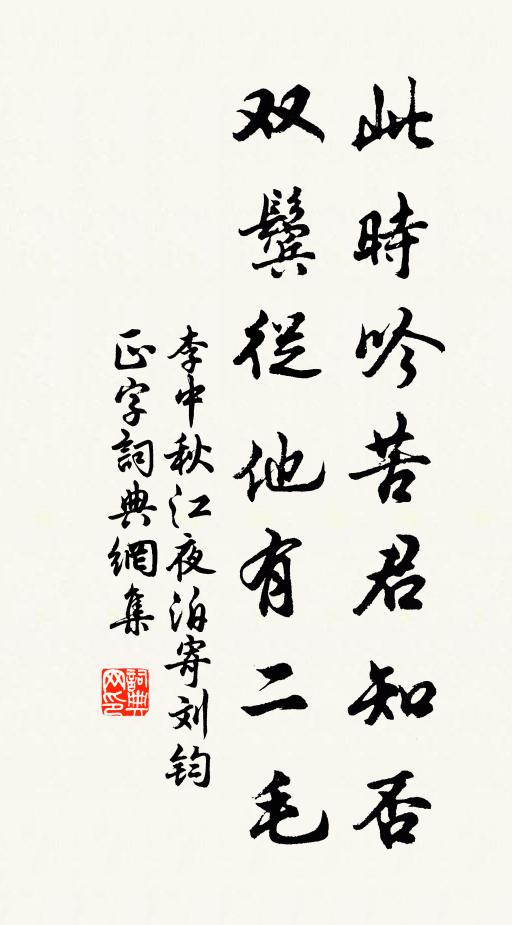 此時吟苦君知否
双鬓從他有二毛
李中秋江夜泊寄刘钧
正字詞典網集
詞典
网印